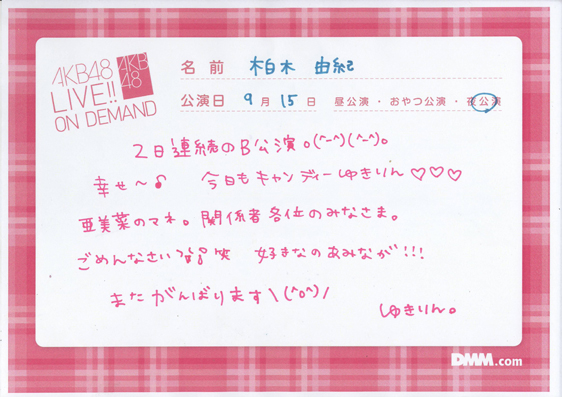 AKB48
LIVE!!
ON DEMAND
AKB
48
名前 柏木 由紀
公演日 9月15日 昼公演・おやつ公演・夜公演
2日連続のB公演。(^-^)(^-^)。
幸せ〜♪ 今日もキャンディーゆきりん♡♡♡
亜美菜のマネ。関係者各位のみなさま。
ごめんなさい 笑 好きなのあみなが!!!
またがんばります\(^o^)/
ゆきりん。
DMM.com